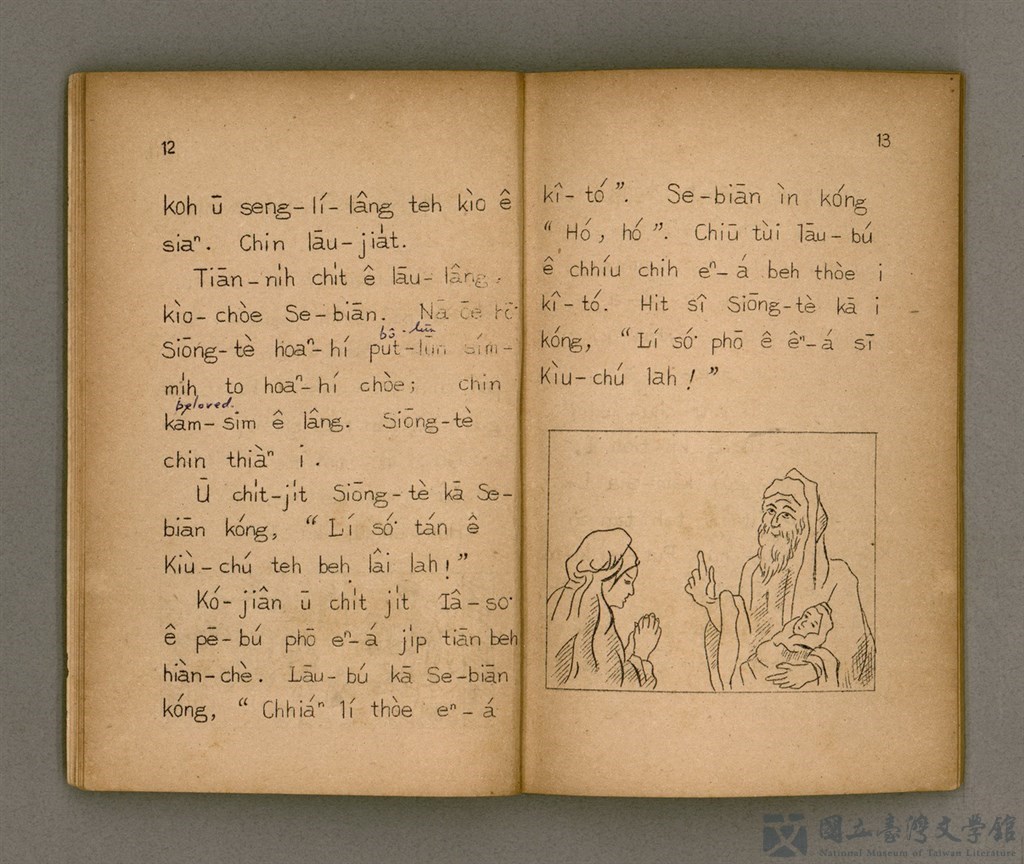 12
koh ū seng-lí-lâng teh kìo ê
siaⁿ. Chin lāu-jia̍t.
Tiān-nih chi̍t ê lāu-lâng
kìo-chòe Se-biān. Nā
bô-lūn
Siōng-tè hoaⁿ-hí put-lūn sím-
mih to hoaⁿ-hí chòe; chin
beloved.
kám-sim ê lâng. Siōng-tè
chin thiàⁿ i.
Ū chi̍t-ji̍t Siōng-tè kā Se-
biān kóng, “Lí só͘ tán ê
Kiù-chú teh beh lâi lah!”
Kó-jiân ū chi̍t ji̍t Iâ-so͘
ê pē-bú phō eⁿ-á ji̍p tiān beh
hiàn-chè. Lāu-bú kā Se-biān
kóng, “Chhiáⁿ lí thòe eⁿ-á
13
kî-tó”. Se-biān ìn kóng
“Hó, hó”. Chiū tùi lāu-bú
ê chhíu chih eⁿ-á beh thòe i
kî-tó. Hit sî Siōng-tè kā i
kóng, “Lí só͘ phō ê êⁿ-á sī
Kìu-chú lah!”
國立臺灣文学館
National Museum of Taiwan Literature